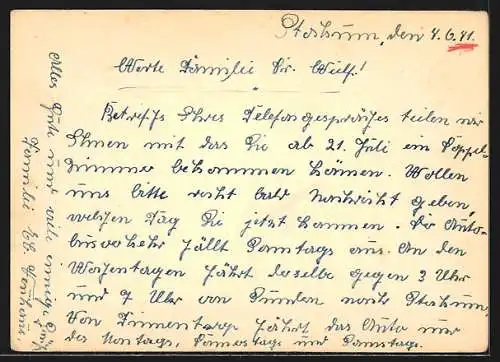 Stockum, den 4.6.41.
Werte Familie Dr. Wülf!
Betreffs Ihres Telefongespräches teilen wir
Ihnen mit das Sie ab 21. Juli ein Doppel-
zimmer bekommen können. Wollen
uns bitte recht bald Nachricht geben,
welchen Tag Sie jetzt kommen. Der Auto-
busverkehr fällt Samstags aus. An den
Wochentagen fährt derselbe gegen 3 Uhr
und 7 Uhr von Sundern nach Stockum,
Von Finnentrop fährt das Auto nur
des Montags, Donnerstags und Samstag.
Alles Gute und viele
Familie